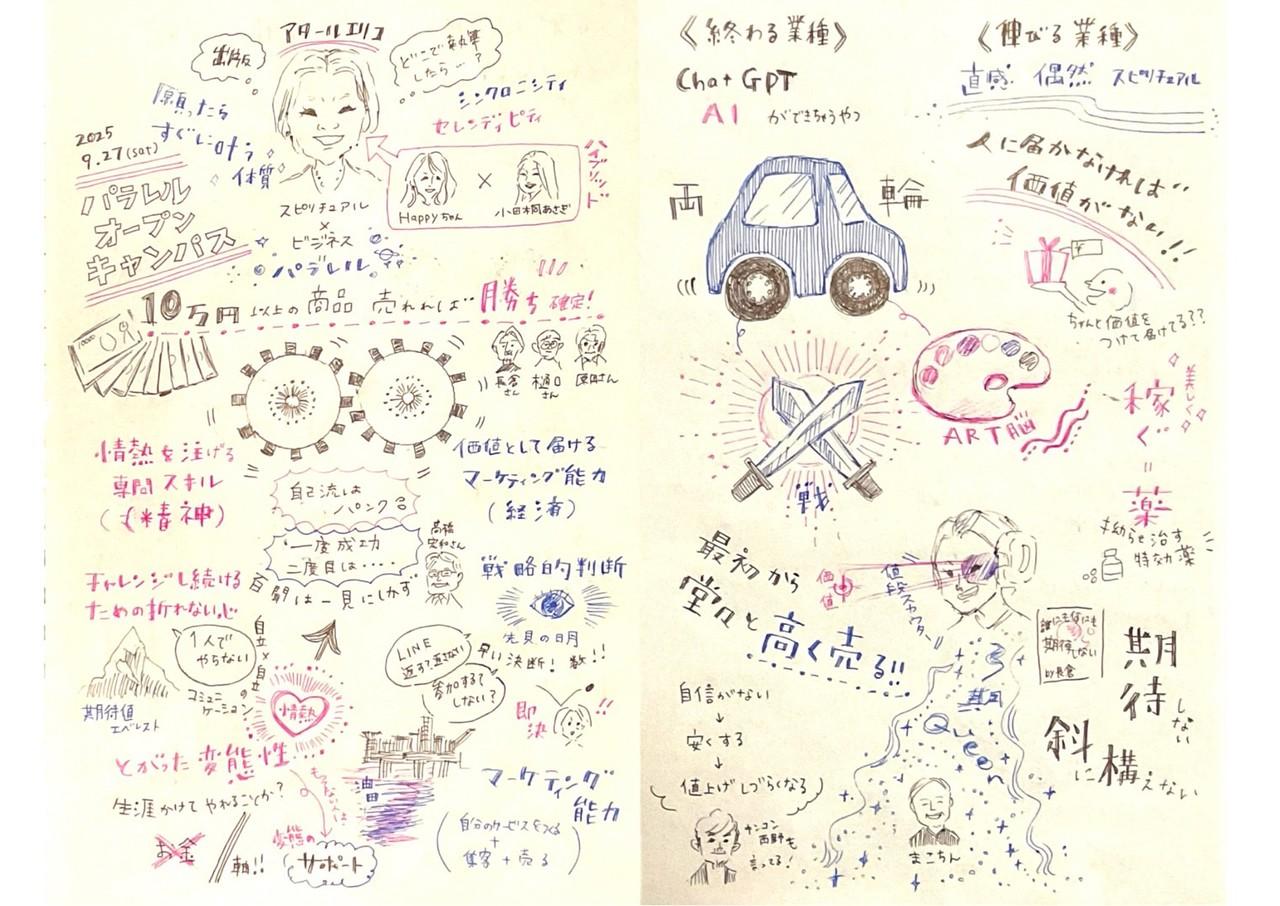 アタールエリコ
出版
どこで執筆
したらいい?
願ったら
すぐに叶う
体質
シンクロニシティ
セレンディピティ
2025
9.27(sat)
パラレル
オープン
キャンパス
スピリチュアル
×
ビジネス
パラレル
Happyちゃん
×
小田桐あさぎ
ハイブリッド
10万円以上の商品 売れれば勝ち確定!
10000
長倉
さん
樋口
さん
原田さん
情熱を注げる
専門スキル
(精神)
価値として届ける
マーケティング能力
(経済)
自己流は
パンクロ
一度成功
二度目は・・・・
百聞は一見にしかず
高橋
宏和さん
チャレンジし続ける
ための折れない心
戦略的判断
先見の目
早い決断!数!!
1人で
やらない
コミュニ
ケーション
自立×自立
の
期待値
エベレスト
情熱
LINE
返す?返さない?
参加する?
しない?
即決!!
とがった変態性
生涯かけてやれることか?
お金
軸!!
もったいない
変態の
サポート
油田
マーケティング
能力
(自分のサービスをつくる
+
集客+売る)
《終わる業種》
ChatGPT
AI ができちゃうやつ
《伸びる業種》
直感 偶然 スピリチュアル
人に届かなければ
価値がない!!
¥
ちゃんと価値を
つけて届けてる??
両輪
ART脳
戦
美しく
稼ぐ
=
薬
拗らせ治す
特効薬
最初から
堂々と高く売る!!
価値
値段スカウター
自信がない
↓
安くする
↓
値上げしづらくなる
キンコン
西野も
言ってる!
Queen
まこちん
誰にも何にも
期待しない
by長倉
期待しない
斜に構えない